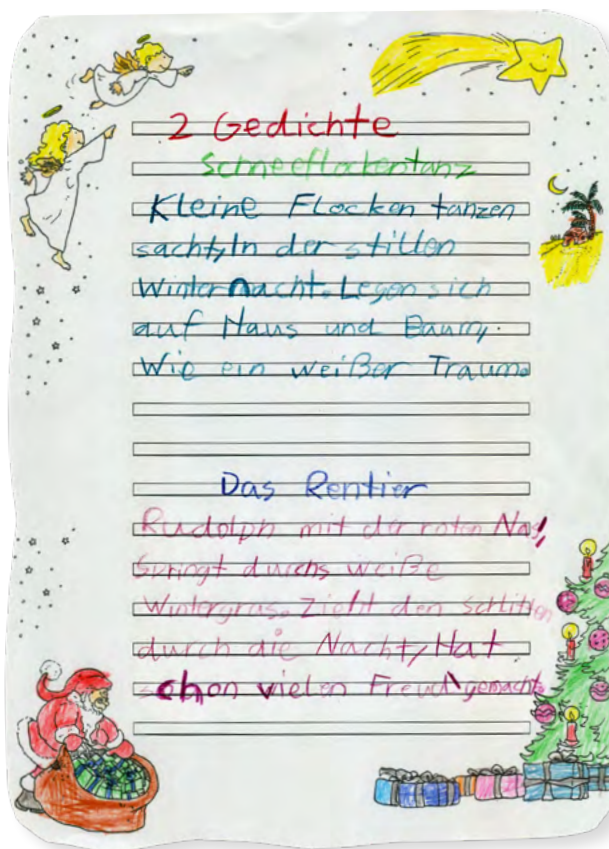 2 Gedichte
Schneeflockentanz
Kleine Flocken tanzen
sacht, In der stillen
Winternacht. Legen sich
auf Haus und Baum,
Wie ein weißer Traum.
Das Rentier
Rudolph mit der roten Nas',
Springt durchs weiße
Wintergras. Zieht den Schlitten
durch die Nacht, Hat
schon vielen Freud' gemacht.